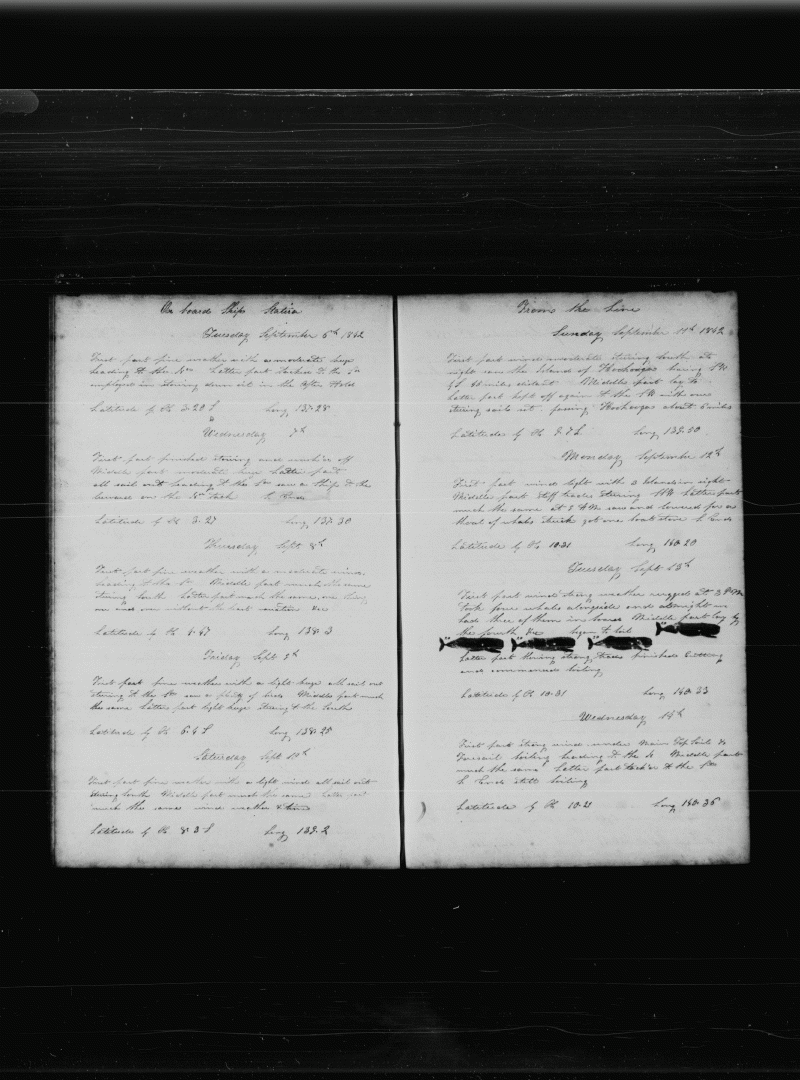 On board Ship Statira
Tuesday September 6th 1842
First part fine weather with a moderate breeze
heading to the Latter part tacked to the
employed in stowing down oil in the After Hold
Latitude by 3.20 S Long 137.28
Wednesday 7th
First part finished stowing and off
Middle part moderate breeze Latter part
all sail out heading to the saw a ship to the
leeward on the tack So Ends
Latitude by 3.27 Long 137.30
Thursday Sept 8th
First part fine weather with a moderate wind
heading to the Middle part much the same
steering South Latter part much the same one thing
and one without the least variation &c
Latitude by 4.47 Long 138.3
Friday Sept 9th
First part fine weather with a light breeze all sail out
steering to the saw a plenty of birds Middle part much
the same Latter part light breeze steering to the South
Latitude by 6.4 S Long 138.25
Saturday Sept 10th
First part fine weather with a light wind all sail out
steering South Middle part much the same Latter part
much the same wind weather &
Latitude by 8.3 S Long 139.2
From the Line
Sunday September 11th 1842
First part wind moderate steering South at
night saw the Island of bearing
miles distant Middle part lay to
Latter part kept off again to the with one
steering sail out passing about 6 miles
Latitude by 9.7 S Long 139.50
Monday September 12th
First part winds light with 3 Islands in sight
Middle part stiff trades steering Latter part
much the same at 8 A M saw and lowered for a
shoal of whales struck got one boat stove So Ends
Latitude by 10.31 Long 140.20
Tuesday Sept 13th
First part wind strong weather rugged at 3 P M
took four whales alongside and at night
had three of them in Middle part lay by
the fourth &c began to boil
Latter part strong trades finished cutting
and commenced boiling
Latitude by 10.31 Long 140.33
Wednesday 14th
First part strong wind under Main Top Sail &
Foresail boiling heading to the Middle part
much the same Latter part tack'd to the
So Ends still boiling
Latitude by 10.21 Long 140.36